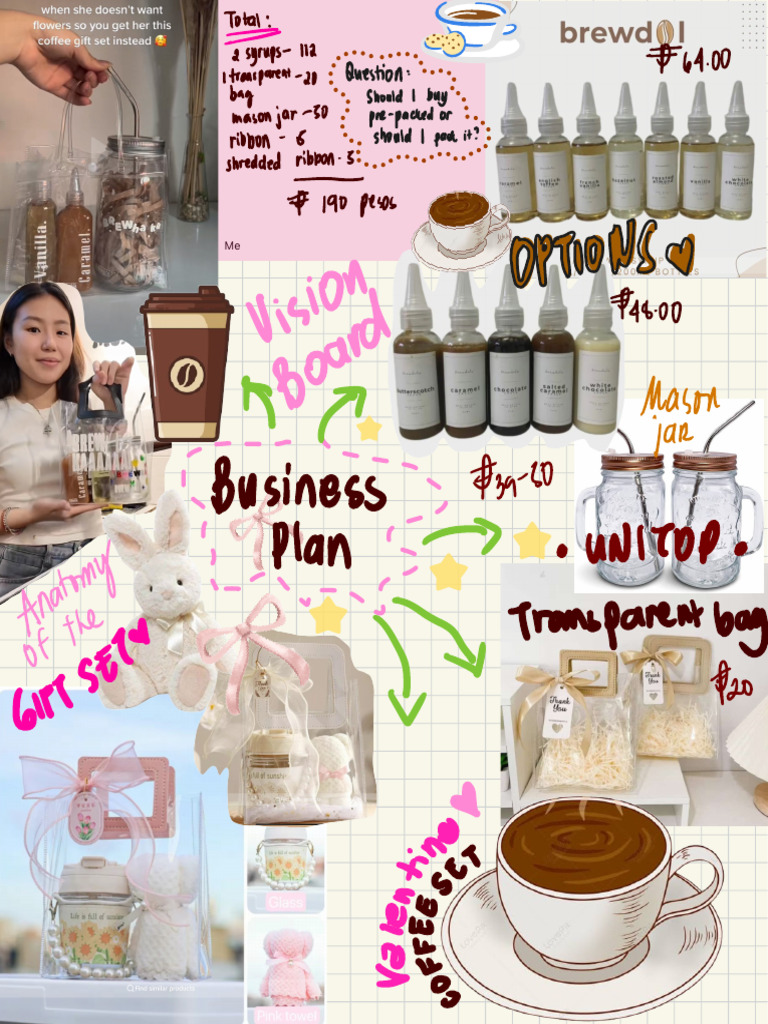 when she doesn't want
flowers so you get her this
coffee gift set instead 🥰
Vanilla.
Caramel.
Total:
2 syrups- 112
1 transparent - 20
bag
mason jar - 50
ribbon - 5
shredded ribbon - 3
₱ 190 pesos
Me
Question:
Should I buy
pre-packed or
should I pack it?
brewdol
₱64.00
caramel
english toffee
french vanilla
hazelnut
roasted almond
vanilla
white chocolate
OPTIONS
₱48.00
butterscotch
caramel
chocolate
salted caramel
white chocolate
Vision
Board
Business
Plan
Mason
jar
₱39-50
• UNITOP •
Transparent bag
Thank You
Thank You
₱20
Anatomy
of the
GIFT SET
Life is full of sunshine
Glass
Pink towel
Find similar products
Valentine
COFFEE SET